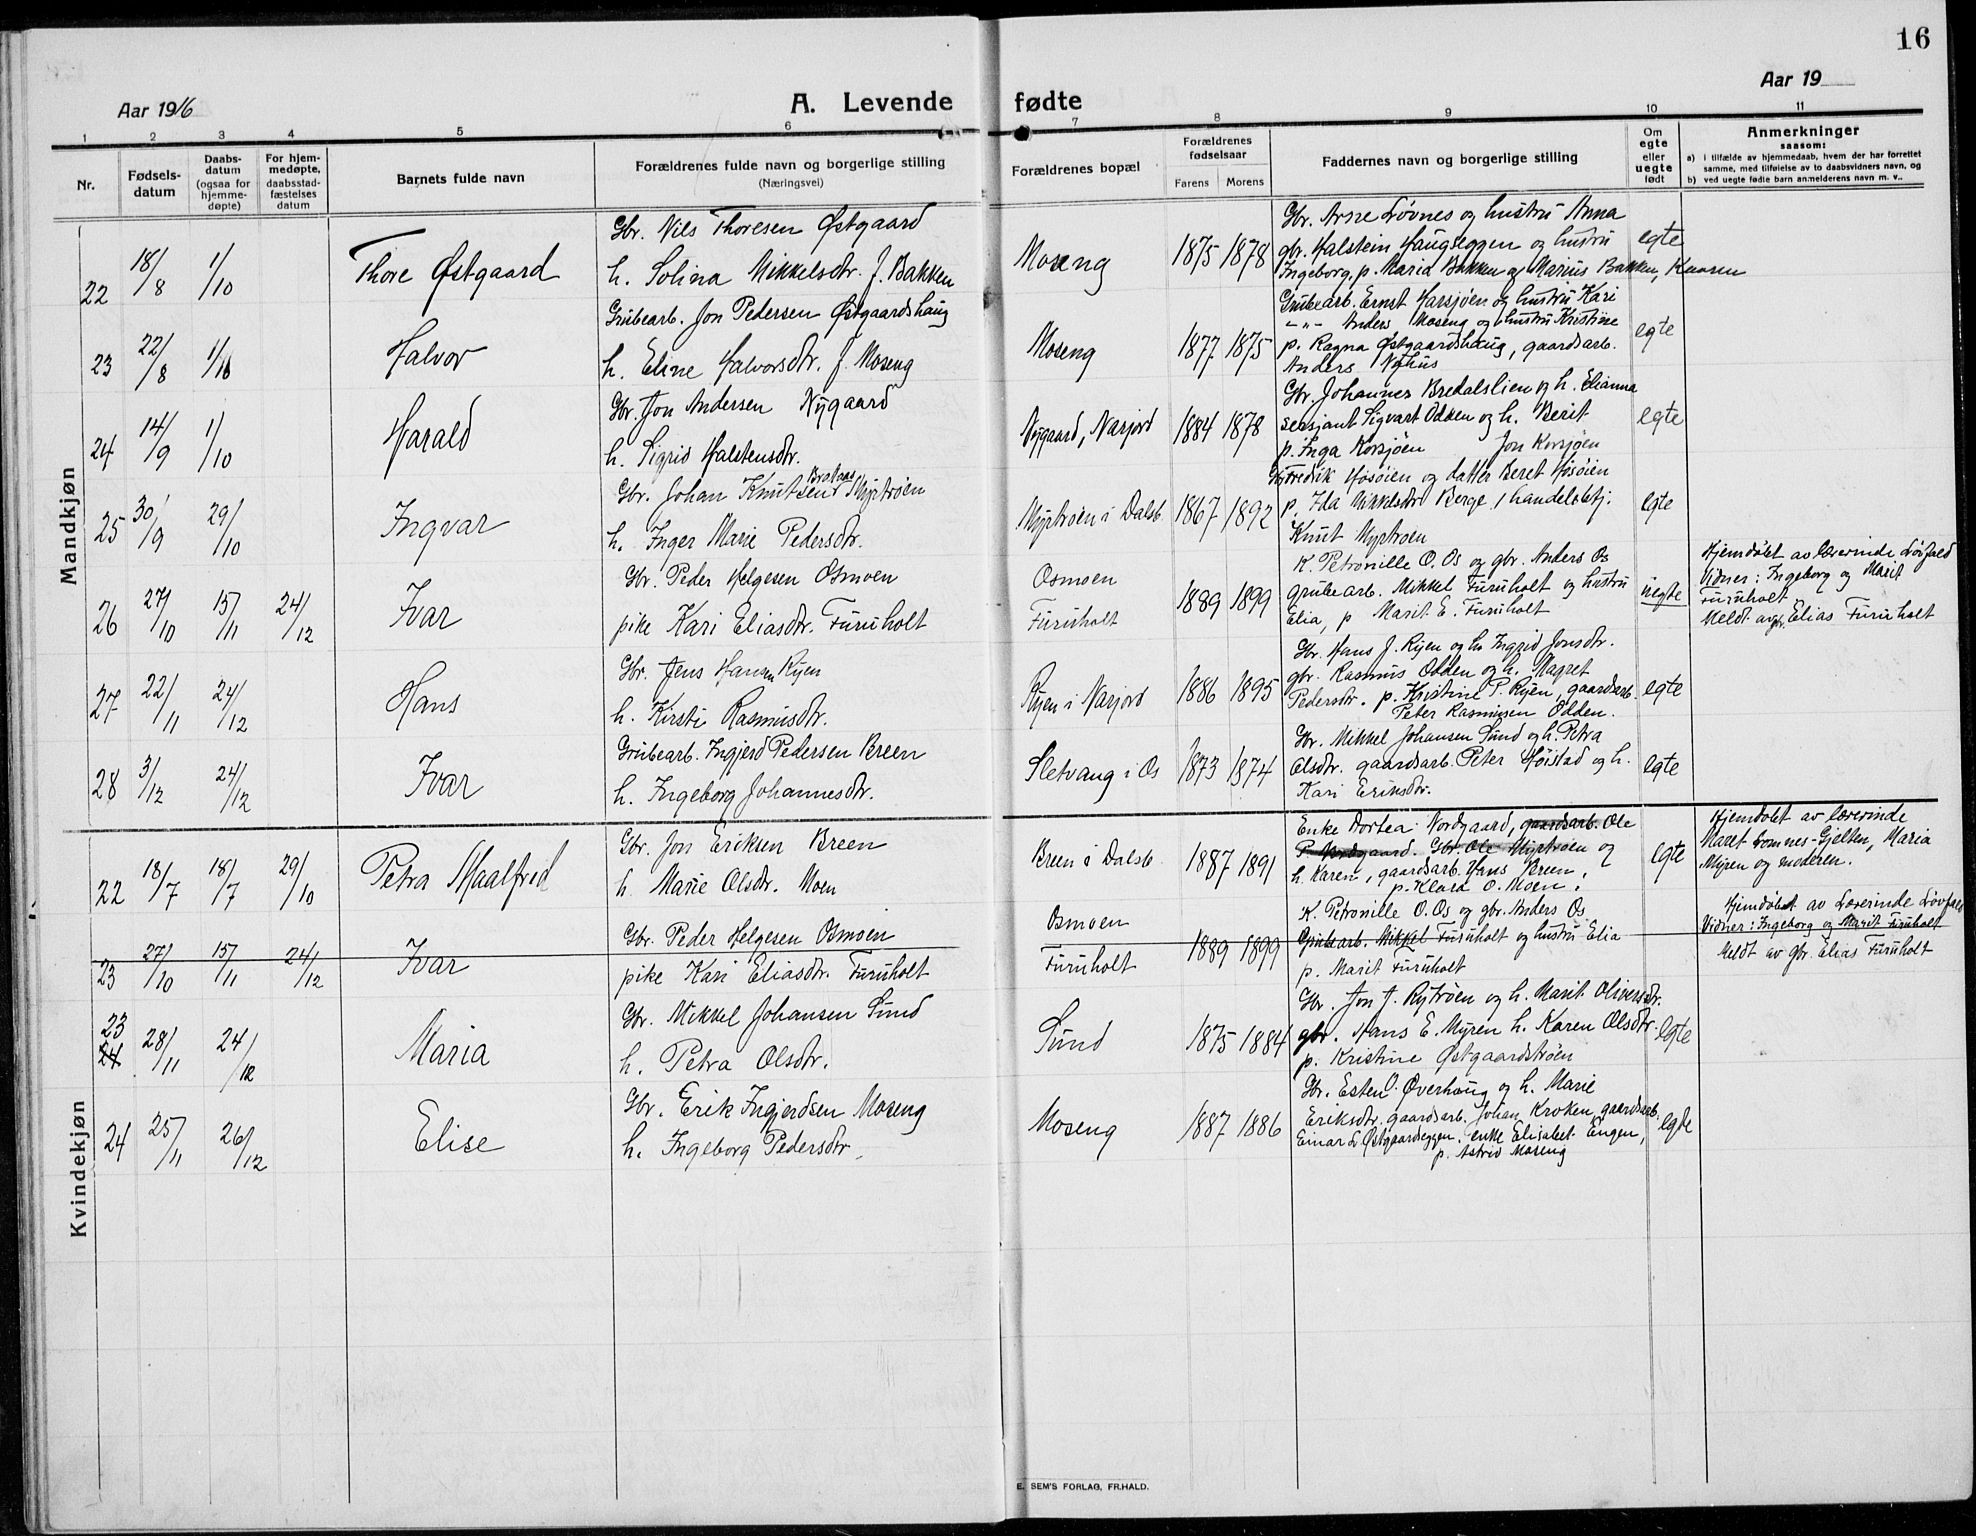 16
Aar 1916
A. Levende fødte
Aar 19
1 2 3 4 5 6 7 8 9 10 11
Nr.
Fødsels-
datum
Daabs-
datum
(ogsaa for
hjemme-
døpte)
For hjem-
medøpte,
daabsstad-
fæstelses
datum
Barnets fulde navn
Forældrenes fulde navn og borgerlige stilling
(Næringsvei)
Forældrenes bopæl
Forældrenes
fødselsaar
Farens Morens
Faddernes navn og borgerlige stilling
Om
egte
eller
uegte
født
Anmerkninger
saasom:
a) i tilfælde av hjemmedaab, hvem der har forrettet
samme, med tilføielse av to daabsvidners navn, og
b) ved uegte fødte barn anmelderens navn m. v..
Mandkjøn
22 18/8 1/10 Thore Østgaard
Gbr. Nils Thoresen Østgaard
h. Solina Mikkelsdtr. f. Bakken
Moseng 1875 1878
Gbr. Arne Løvnes og hustru Anna
gbr. Halstein Haugseggen og hustru
Ingeborg, p. Maria Bakken og Marius Bakken, Knosen
egte
23 22/8 1/10 Halvor
Grubearb. Jon Pedersen Østgaardshaug
h. Eline Halvorsdtr. f. Moseng
Moseng 1877 1875
Grubearb. Ernst Harsjøen og hustru Kari
-"- Anders Moseng og hustru Kristine
p. Ragna Østgaardshaug, gaardsarb.
Anders Nyhus
egte
24 14/9 1/10 Harald
Gbr. Jon Andersen Nygaard
h. Sigrid Halstensdtr.
Nygaard, Narjord 1884 1878
Gbr. Johannes Bredalslien og h. Elianna
sersjant Sigvart Odden og h. Berit
p. Inga Korsjøen Jon Korsjøen
egte
25 30/9 29/10 Ingvar
Gbr. Johan Knutsen Myrtrøen
h. Inger Marie Pedersdtr.
Myrtrøen i Dalsb. 1867 1892
Fredrik Hosøien og datter Beret Hosøien
p. Ida Mikkelsdtr Berge, handelsbtj.
Knut Myrtrøen
egte
26 27/10 15/11 24/12 Ivar
Gbr. Peder Helgesen Osmoen
pike Kari Eliasdtr. Furuholt
Osmoen
Furuholt
1889 1899
K. Petronille O. Os og gbr. Anders Os
grubearb. Mikkel Furuholt og hustru
Elia, p Marit E. Furuholt
uegte
Hjemdøbt av lærerinde Løvfald
Vidner: Ingeborg og Marit
Furuholt
Meldt av gbr. Elias Furuholt
27 22/11 24/12 Hans
Gbr. Jens Hansen Ryen
h. Kirsti Rasmusdtr.
Ryen i Narjord 1886 1895
Gbr. Hans J. Ryen og h. Ingrid Jonsdtr.
gbr. Rasmus Odden og h. Magret
Pedersdtr. p. Kristine P. Ryen, gaardsarb.
Peter Rasmussen Odden.
egte
28 3/12 24/12 Ivar
Grubearb. Ingjerd Pedersen Breen
h. Ingeborg Johannesdtr.
Sletvang i Os 1873 1874
Gbr. Mikkel Johansen Sund og h. Petra
Olsdtr. gaardsarb. Peter Høistad og h.
Kari Eriksdtr.
egte
Kvindekjøn
22 18/7 18/7 29/10 Petra Maalfrid
Gbr. Jon Eriksen Breen
h. Marie Olsdtr. Moen
Breen i Dalsb. 1887 1891
Enke Dortea Nordgaard, gaardsarb. Ole
P. Nordgaard. Gbr. Ole Myrtrøen og
h. Karen, gaardsarb. Hans Breen,
p. Klara O. Moen.
egte
Hjemdøbt av lærerinde
Maret Gjelten, Maria
Myren og moderen.
23 27/10 15/11 24/12 Ivar
Gbr. Peder Helgesen Osmoen
pike Kari Eliasdtr. Furuholt
Osmoen
Furuholt
1889 1899
K. Petronille O. Os og gbr. Anders Os
Grubearb. Mikkel Furuholt og hustru Elia
p. Marit Furuholt
Hjemdøbt av Lærerinde Løvfald
Vidner: Ingeborg og Marit Furuholt
Meldt av Gbr. Elias Furuholt
23
24 28/11 24/12 Maria
Gbr. Mikkel Johansen Sund
h. Petra Olsdtr.
Sund 1875 1884
Gbr. Jon J. Rytrøen og h. Marit Oliversdtr.
gbr. Hans E. Myren h. Karen Olsdtr.
p. Kristine Østgaardstrøen
egte
24 25/11 26/12 Elise
Gbr. Erik Ingjerdsen Moseng
h. Ingeborg Pedersdtr.
Moseng 1887 1886
Gbr. Esten O. Øverhaug og h. Marie
Eriksdtr. gaardsarb. Johan Kroken, gaardsarb.
Einar Østgaardseggen. enke Elisabet Engen,
p. Astrid Moseng
egte
E. SEM'S FORLAG, FR.HALD.